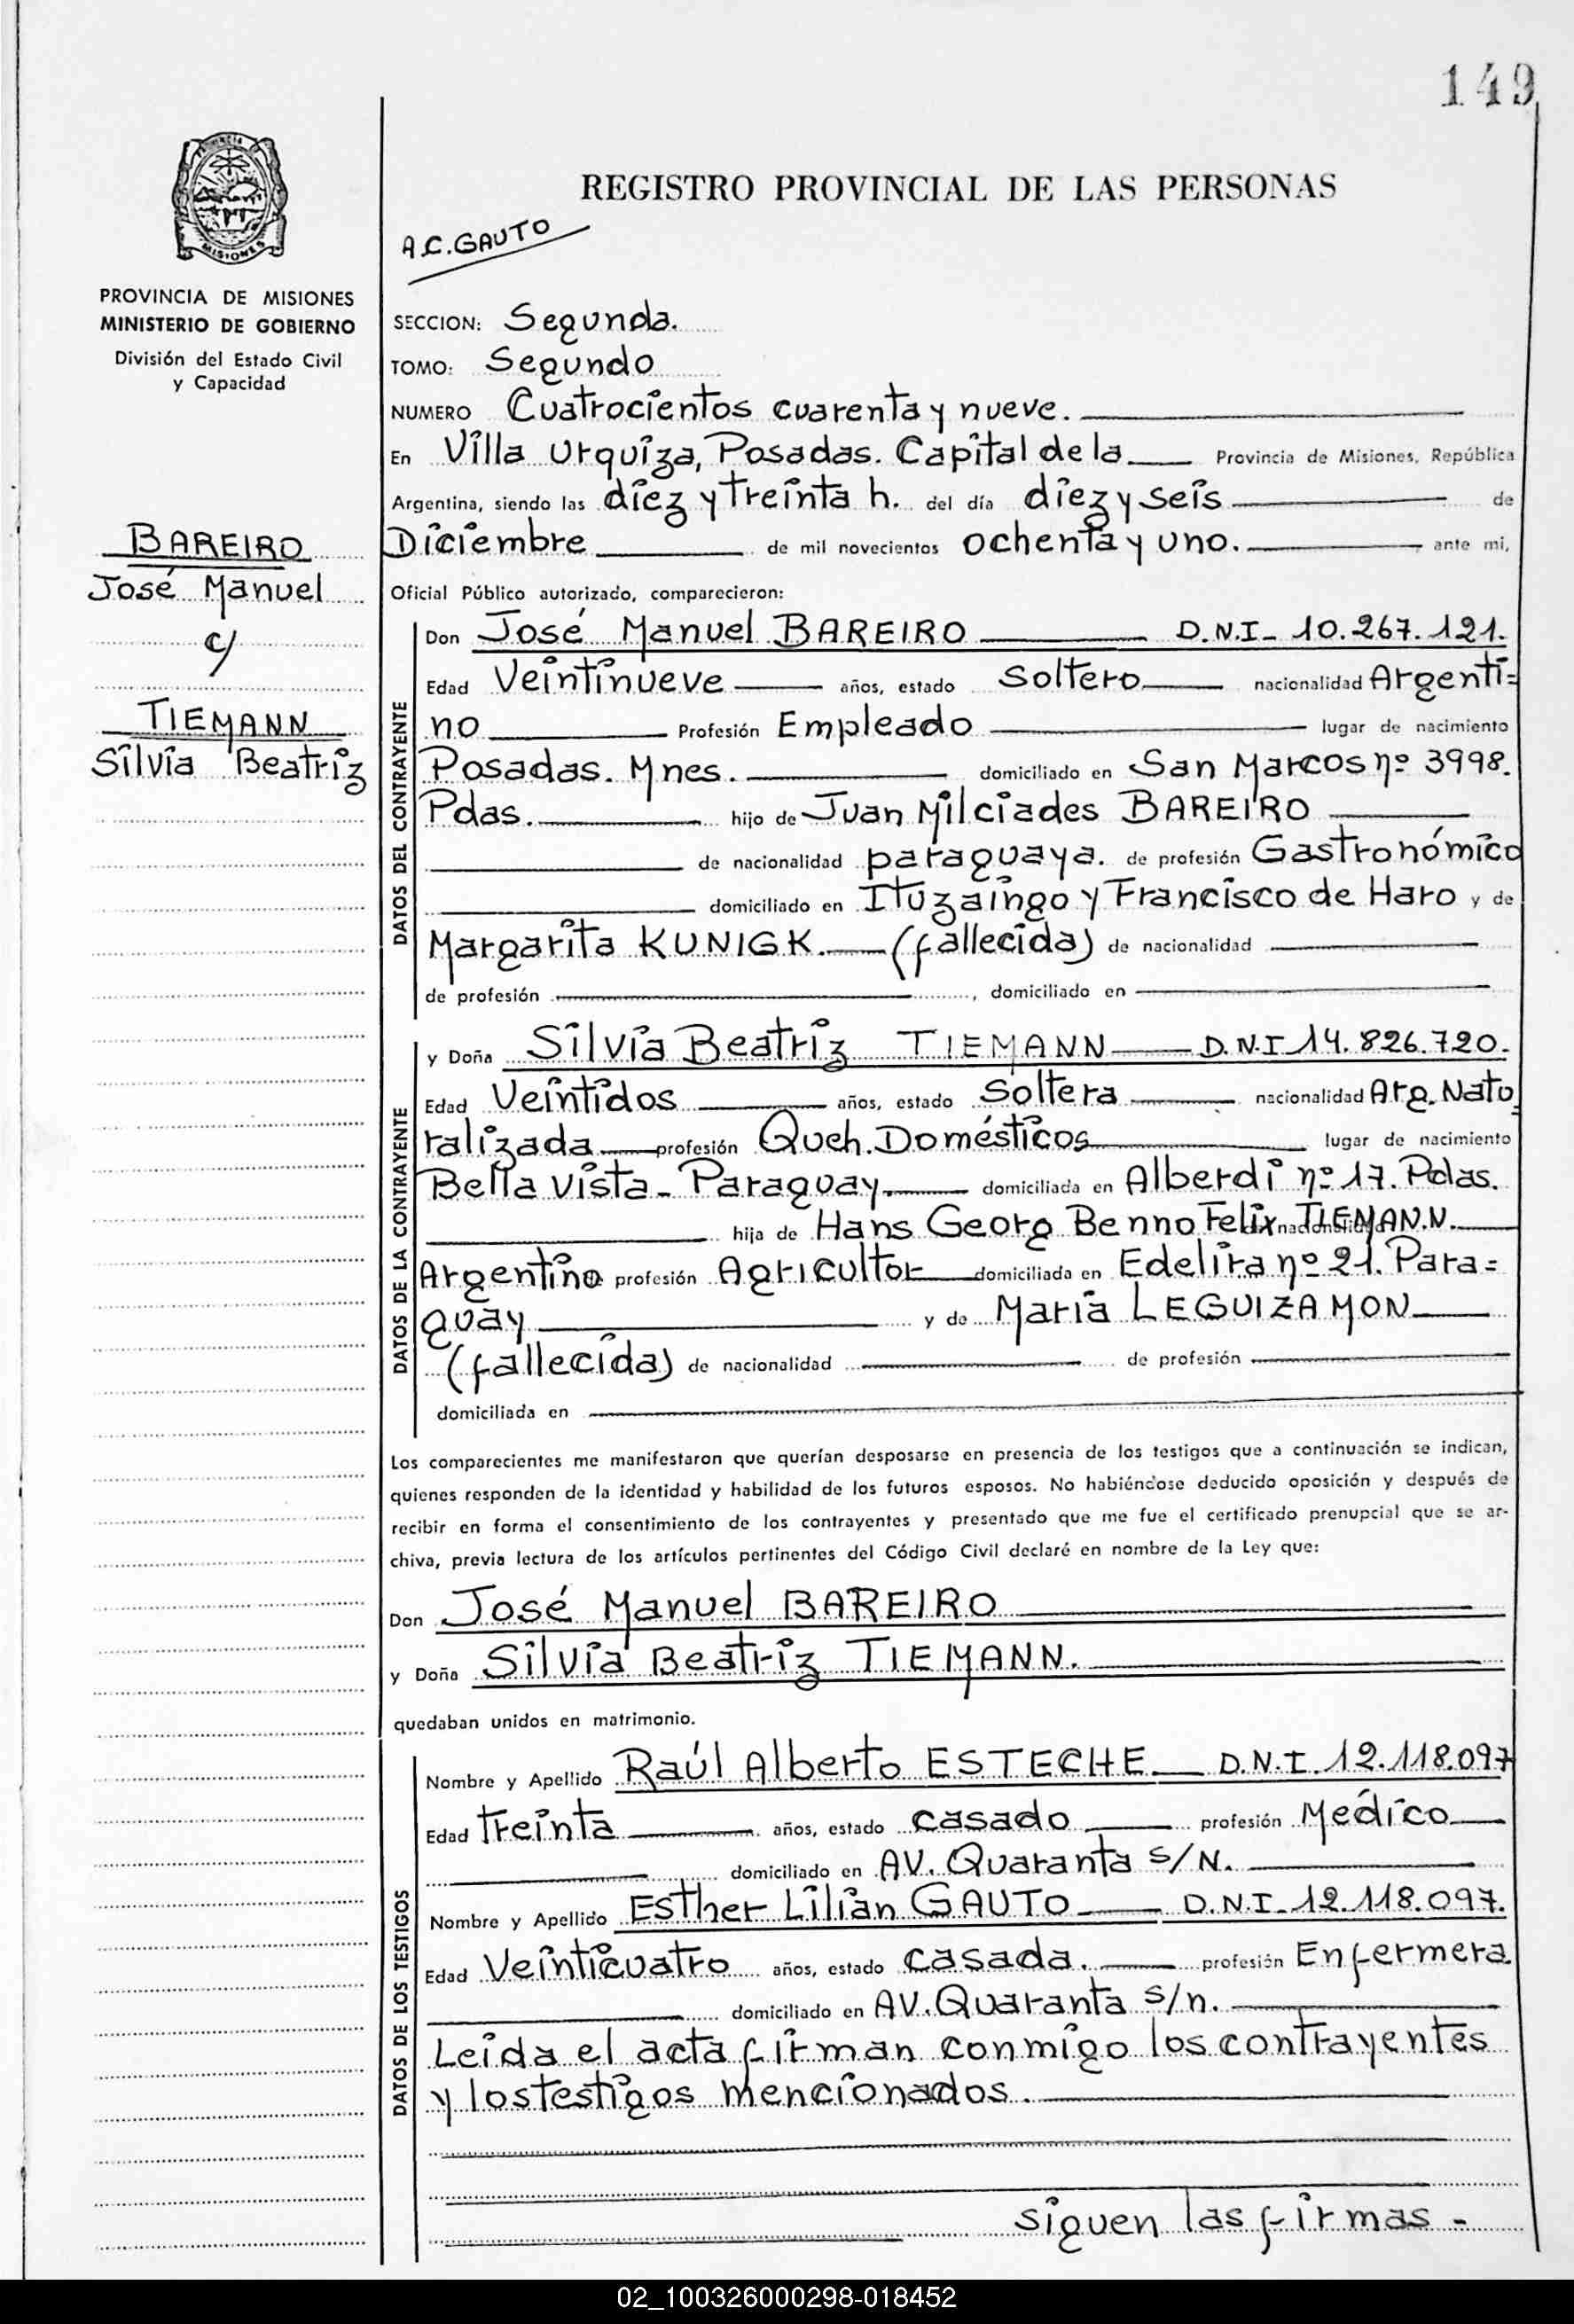 149
REGISTRO PROVINCIAL DE LAS PERSONAS
A.C. GAUTO
PROVINCIA
MISIONES
PROVINCIA DE MISIONES
MINISTERIO DE GOBIERNO
División del Estado Civil
y Capacidad
BAREIRO
José Manuel
c/
TIEMANN
Silvia Beatriz
SECCION: Segunda.
TOMO: Segundo
NUMERO Cuatrocientos cuarenta y nueve.
En Villa Urquiza, Posadas. Capital de la Provincia de Misiones, República
Argentina, siendo las diez y treinta h. del día diez y seis de
Diciembre de mil novecientos ochenta y uno. ante mi,
Oficial Público autorizado, comparecieron:
DATOS DEL CONTRAYENTE
Don José Manuel BAREIRO D.N.I- 10.267.121.
Edad Veintinueve años, estado Soltero nacionalidad Argenti=
no Profesión Empleado lugar de nacimiento
Posadas. Mnes. domiciliado en San Marcos nº 3998.
Pdas. hijo de Juan Milciades BAREIRO
de nacionalidad paraguaya. de profesión Gastronómico
domiciliado en Ituzaingo y Francisco de Haro y de
Margarita KUNIGK. (fallecida) de nacionalidad
de profesión , domiciliado en
DATOS DE LA CONTRAYENTE
y Doña Silvia Beatriz TIEMANN D.N.I 14.826.720.
Edad Veintidos años, estado Soltera nacionalidad Arg. Natu
ralizada profesión Queh. Domésticos lugar de nacimiento
Bella Vista - Paraguay. domiciliada en Alberdi nº 17. Pdas.
hija de Hans Georg Benno Felix TIEMANN. nacionalidad
Argentino profesión Agricultor domiciliada en Edelira nº 21. Para=
guay y de María LEGUIZAMON
(fallecida) de nacionalidad de profesión
domiciliada en
Los comparecientes me manifestaron que querían desposarse en presencia de los testigos que a continuación se indican,
quienes responden de la identidad y habilidad de los futuros esposos. No habiéndose deducido oposición y después de
recibir en forma el consentimiento de los contrayentes y presentado que me fue el certificado prenupcial que se ar-
chiva, previa lectura de los artículos pertinentes del Código Civil declaré en nombre de la Ley que:
Don José Manuel BAREIRO
y Doña Silvia Beatriz TIEMANN.
quedaban unidos en matrimonio.
DATOS DE LOS TESTIGOS
Nombre y Apellido Raúl Alberto ESTECHE D.N.I. 12.118.097
Edad Treinta años, estado casado profesión Médico
domiciliado en AV. Quaranta S/N.
Nombre y Apellido Esther Lilian GAUTO D.N.I. 12.118.097.
Edad Veinticuatro años, estado casada. profesión Enfermera
domiciliado en AV. Quaranta s/n.
Leida el acta firman conmigo los contrayentes
y los testigos mencionados.
siguen las firmas -
02_100326000298-018452